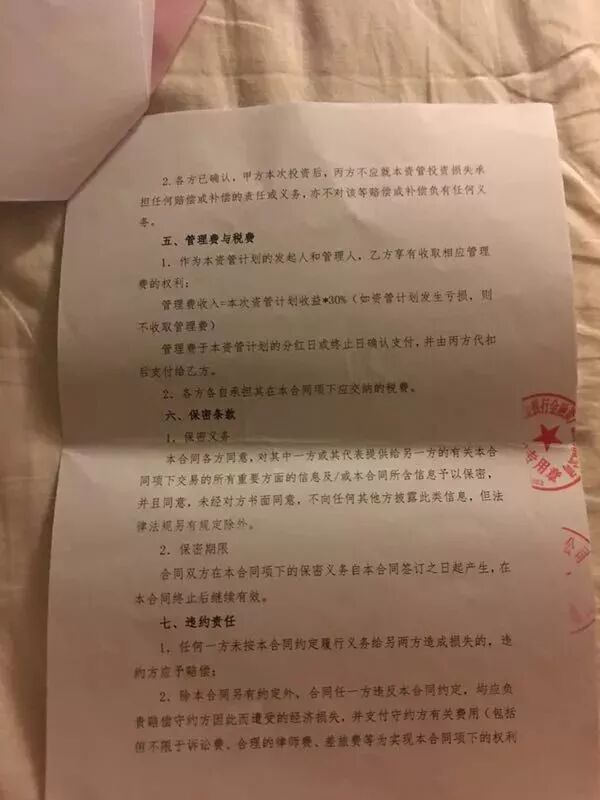 2.各方已确认，甲方本次投资后，丙方不应就本资管投资损失承
担任何赔偿或补偿的责任或义务，亦不对该等赔偿或补偿负有任何义
务。
五、管理费与税费
1．作为本资管计划的发起人和管理人，乙方享有收取相应管理
费的权利；
管理费收入=本次资管计划收益*30%（如资管计划发生亏损，则
不收取管理费）
管理费于本资管计划的分红日或终止日确认支付，并由丙方代扣
后支付给乙方。
2．各方各自承担其在本合同项下应交纳的税费。
六、保密条款
1．保密义务
本合同各方同意，对其中一方或其代表提供给另一方的有关本合
同项下交易的所有重要方面的信息及/或本合同所含信息予以保密，
并且同意，未经对方书面同意，不向任何其他方披露此类信息，但法
律法规另有规定除外。
2．保密期限
合同双方在本合同项下的保密义务自本合同签订之日起产生，在
本合同终止后继续有效。
七、违约责任
1．任何一方未按本合同约定履行义务给另两方造成损失的，违
约方应予赔偿；
2．除本合同另有约定外，合同任一方违反本合同约定，均应负
责赔偿守约方因此而遭受的经济损失，并支付守约方有关费用（包括
但不限于诉讼费、合理的律师费、差旅费等为实现本合同项下的权利
银行金融
专用章
公司